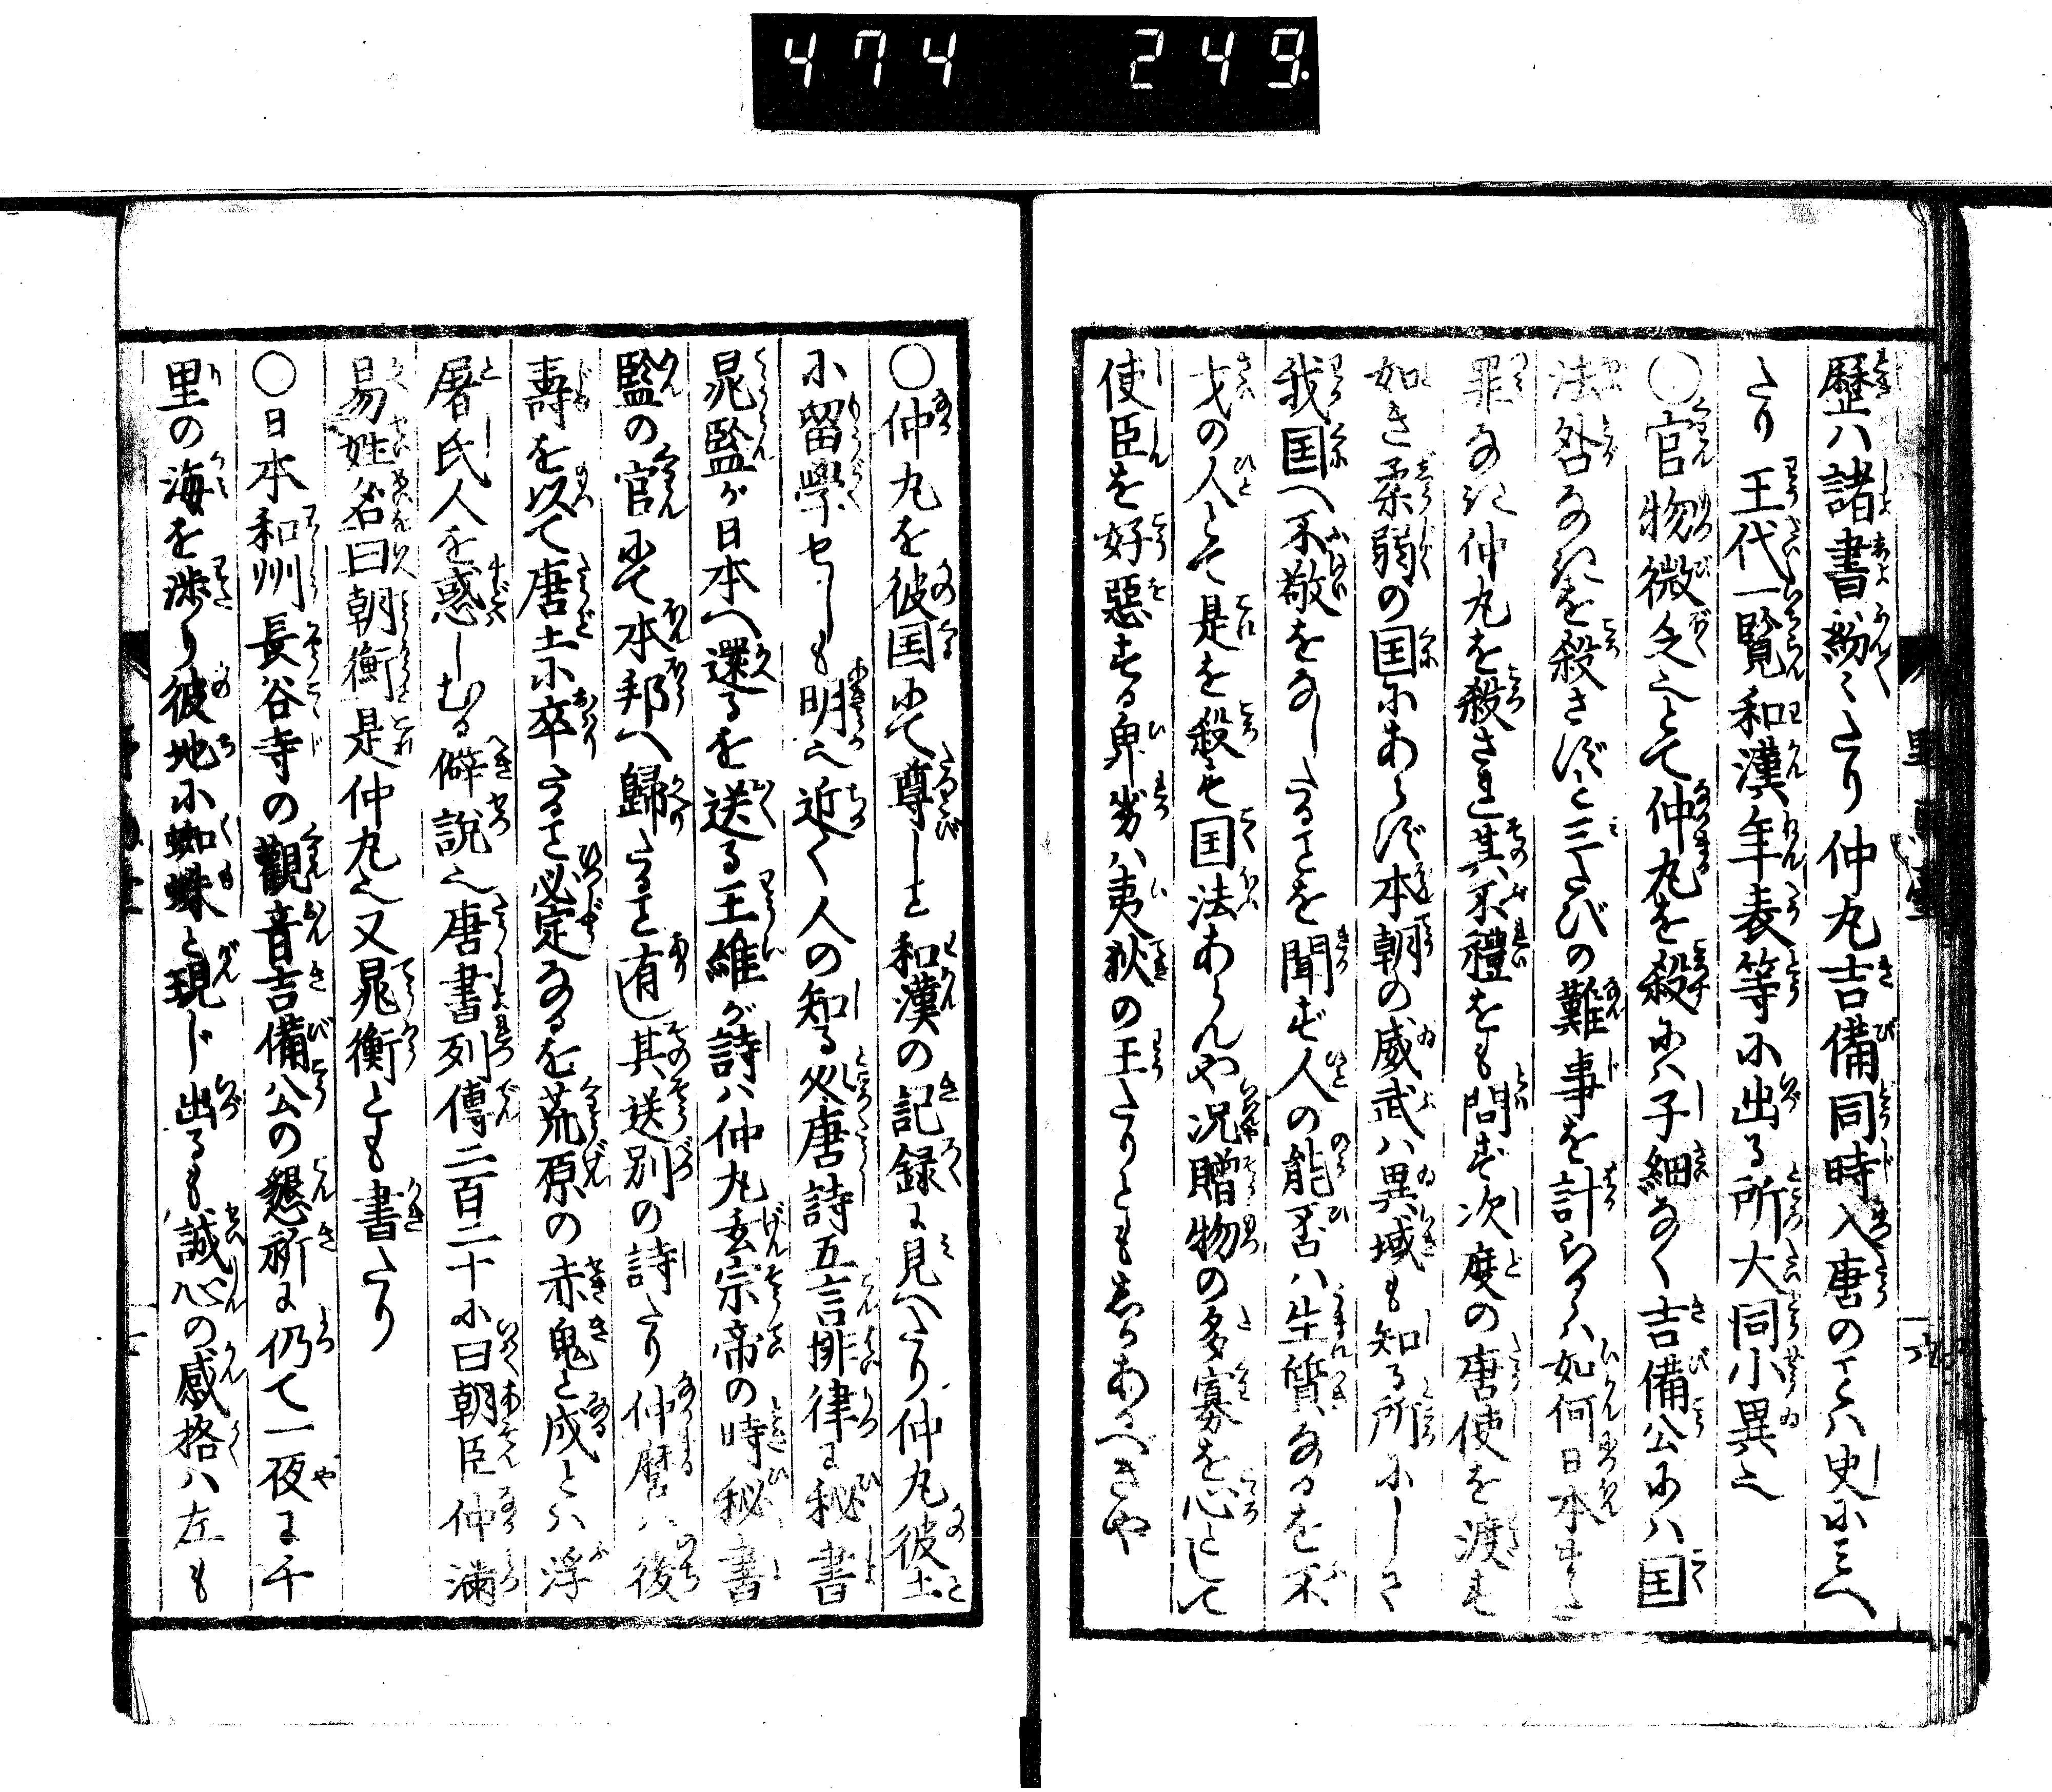 474 249
歴ハ諸書紛々たり仲丸吉備同時入唐のヿハ史にみへ
たり王代一覧和漢年表等に出る所大同小異也
○官物微乏也とて仲丸を殺にハ子細なく吉備公にハ国
法咎なきを殺さずと三たびの難事を計りしハ如何日本
罪なき仲丸を殺され其不禮をも問ず次度の唐使を渡す
如き柔弱の国にあらず本朝の威武ハ異域も知る所にして
我国へ不敬をなしたるヿを聞ず人の能否ハ生質なるを不
才の人とて是を殺す国法あらんや况贈物の多寡を心として
使臣を好惡する卑劣ハ夷狄の王たりとも豈あるべきや
○仲丸を彼国にて尊しと和漢の記録に見へたり仲丸彼土
に留學せしも明也近く人の知る処唐詩五言排律に秘書
晁監が日本へ還るを送る王維が詩ハ仲丸玄宗帝の時秘書
監の官にて本邦へ歸たるヿ有し其送別の詩たり仲麿ハ後
壽を以て唐土に卒たるヿ必定なるを荒原の赤鬼と成とハ浮
屠氏人を惑しむる僻說也唐書列傳二百二十に曰朝臣仲満
易姓名曰朝衡是仲丸也又晁衡とも書たり
○日本和州長谷寺の觀音吉備公の懇祈に仍て一夜に千
里の海を渉り彼地に蜘蛛と現じ出るも誠心の感格ハ左も